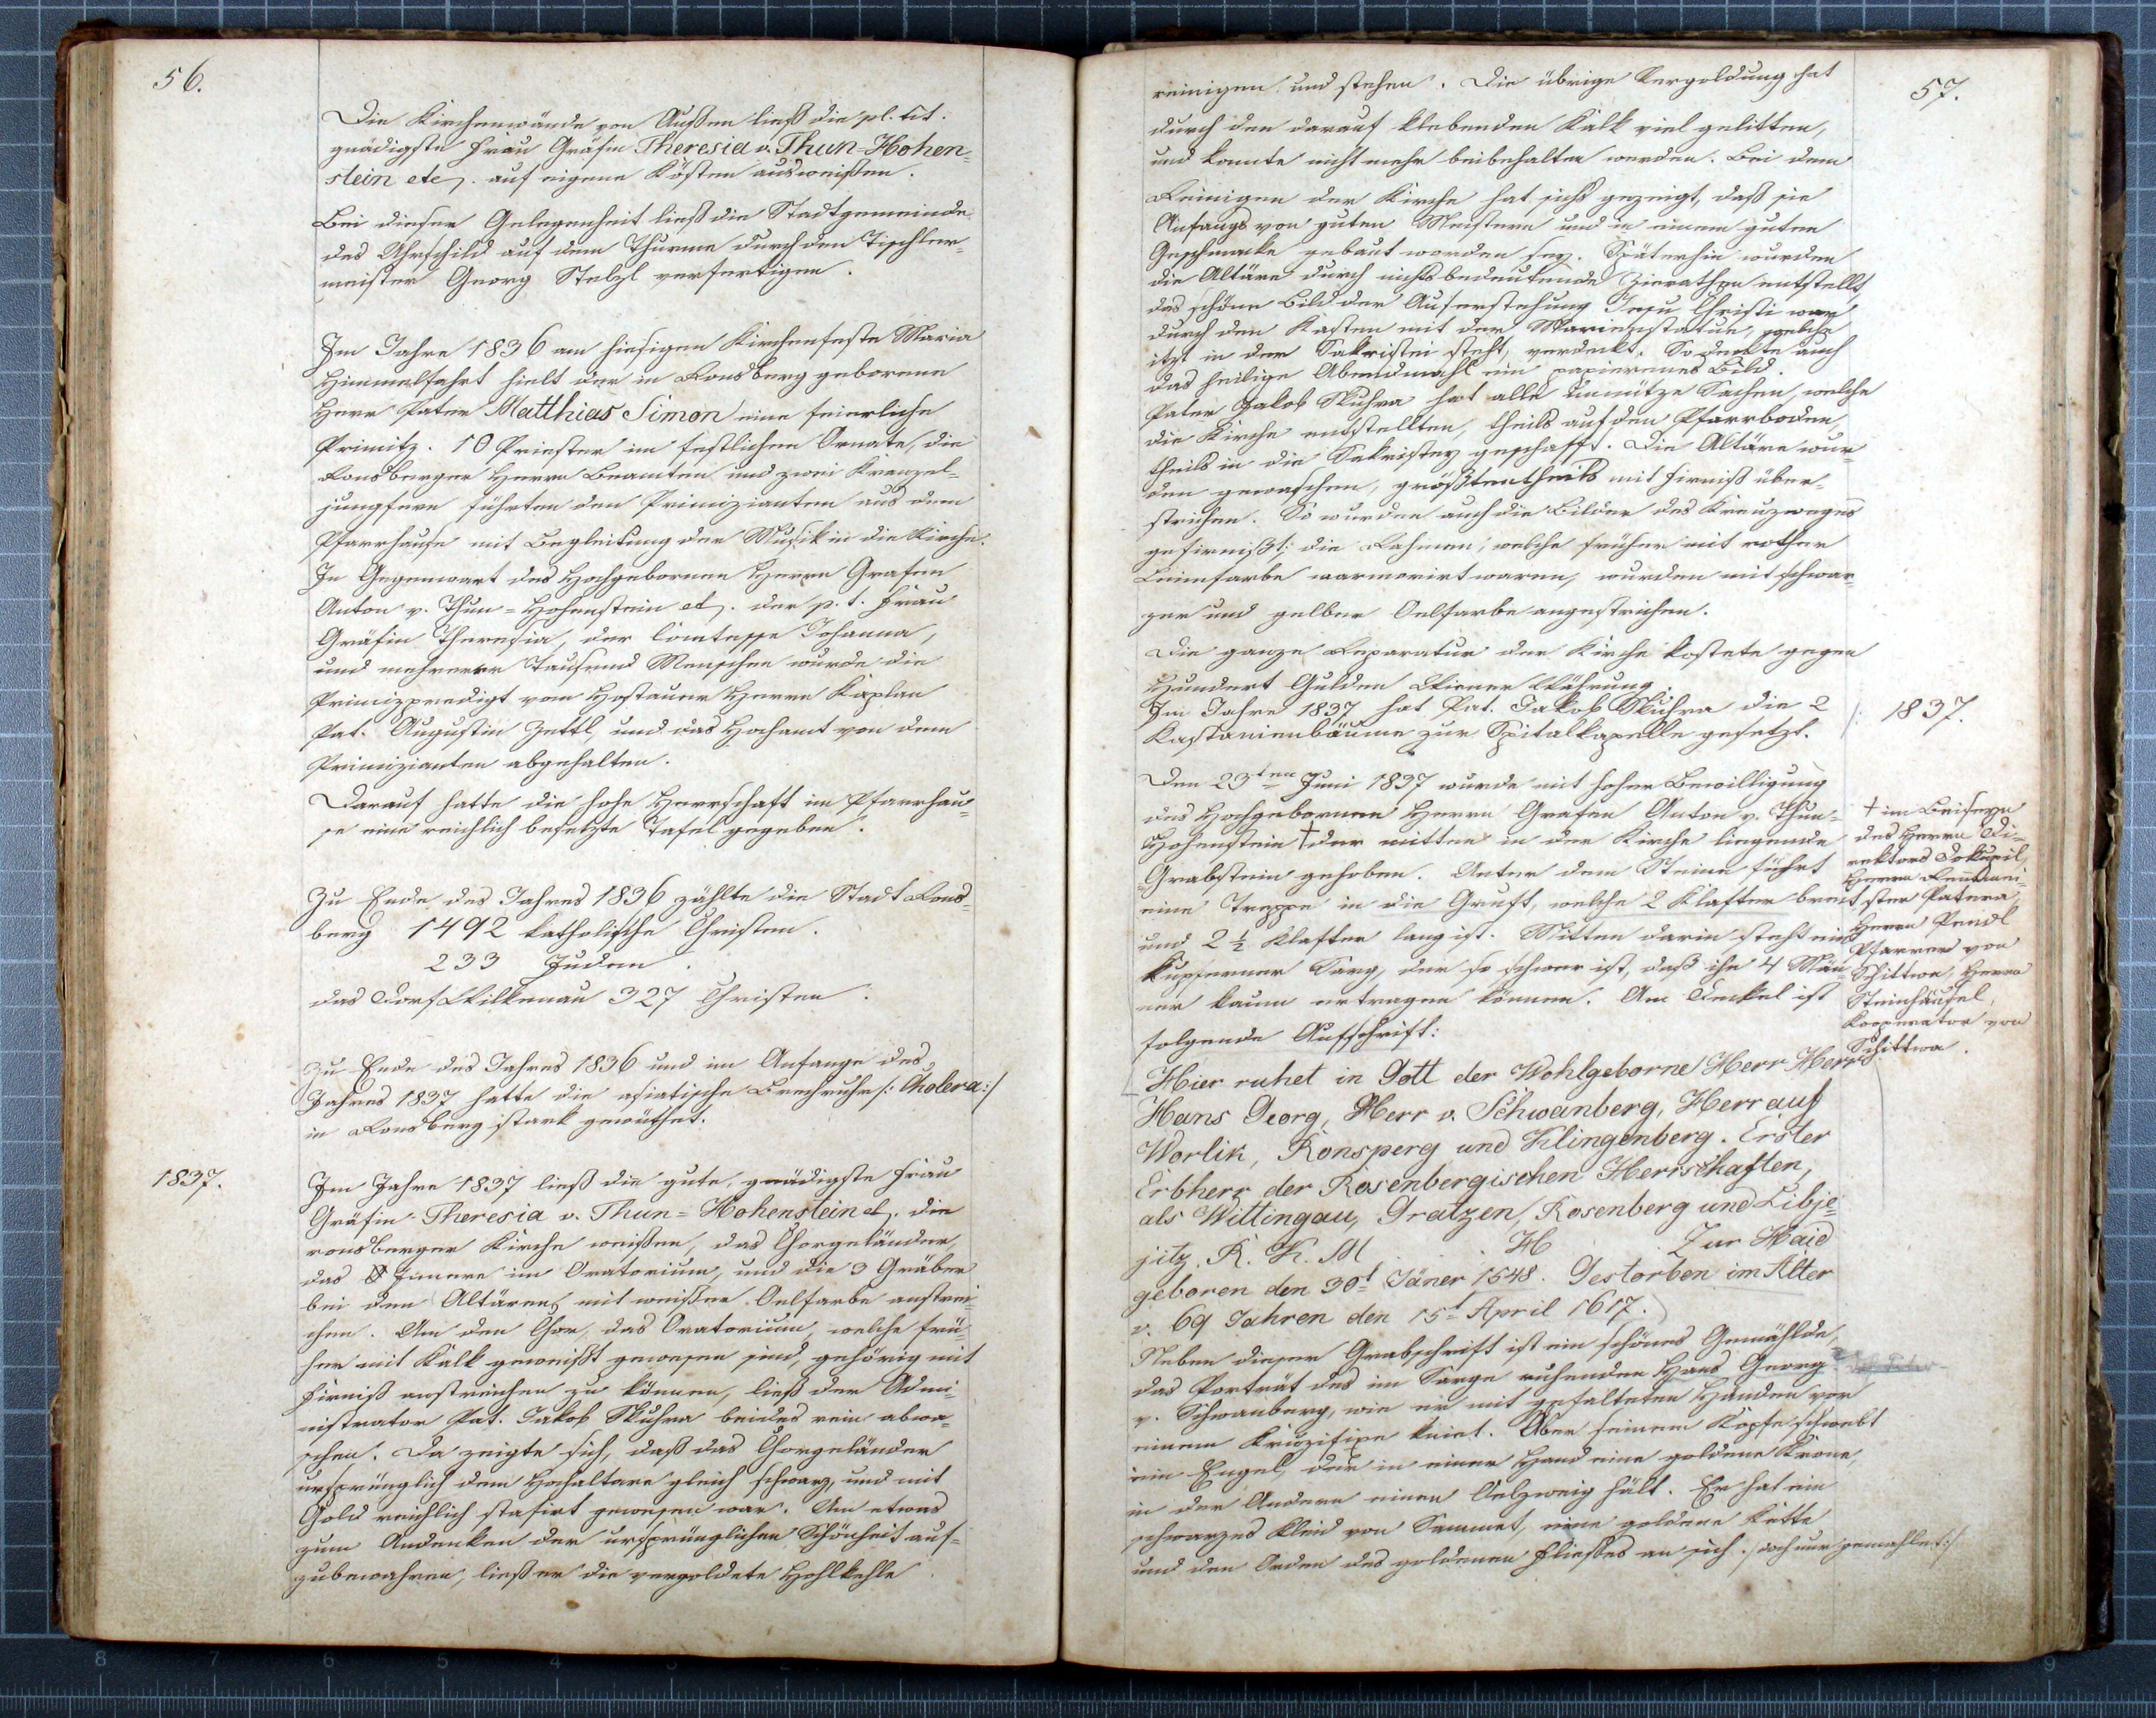 56.
Die Kirchenwände von Außen ließ die pl. tit.
gnädigste Frau Gräfin Theresia v. Thun-Hohen-
stein etc. auf eigene Kösten ausweißen.
Bei dieser Gelegenheit ließ die Stadtgemeinde
das Uhrschild auf dem Thurme durch den Tischler-
meister Georg Stelzl verfertigen.
Im Jahre 1836 am hiesigen Kirchenfeste Maria
Himmelfahrt hielt der in Ronsberg geborene
Herr Pater Matthias Simon eine feierliche
Primitz. 10 Priester im festlichen Ornate, die
Ronsberger Herrn Beamten und zwei Kranzel-
jungfern führten den Primizianten aus dem
Pfarrhause mit Begleitung der Musik in die Kirche.
In Gegenwart des Hochgebornen Herrn Grafen
Anton v. Thun-Hohenstein etc. der p. t. Frau
Gräfin Theresia, der Comtesse Johanna,
und mehrerer Tausend Menschen wurde die
Primizpredigt vom Hostauer Herrn Kaplan
Pat. Augustin Zettl, und das Hochamt von dem
Primizianten abgehalten.
Darauf hatte die hohe Herrschaft im Pfarrhau-
se eine reichlich besetzte Tafel gegeben.
Zu Ende des Jahres 1836 zählte die Stadt Rons-
berg 1492 katholische Christen.
233 Juden.
das Dorf Wilkenau 327 Christen.
Zu Ende des Jahres 1836 und im Anfange des
Jahres 1837 hatte die asiatische Brechruhr /: Cholera :/
in Ronsberg stark gewüthet.
1837.
Im Jahre 1837 ließ die gute, gnädigste Frau
Gräfin Theresia v. Thun-Hohenstein etc. die
ronsberger Kirche weißen, das Chorgeländer,
das Innere im Oratorium, und die 3 Gräber
bei den Altären mit weißer Oelfarbe anstrei-
chen. Um den Chor, das Oratorium, welche frü-
her mit Kalk geweißt gewesen sind, gehörig mit
Firniß anstreichen zu können, ließ der Admi-
nistrator Pat. Jakob Skuhra beides rein abwa-
schen. Da zeigte sich, daß das Chorgeländer
ursprünglich dem Hochaltare gleich schwarz, und mit
Gold reichlich stafirt gewesen war. Um etwas
zum Andenken der ursprünglichen Schönheit auf-
zubewahren, ließ er die vergoldete Hohlkehle
57.
reinigen und stehen. Die übrige Vergoldung hat
durch den darauf klebenden Kalk viel gelitten,
und konnte nicht mehr beibehalten werden. Bei dem
Reinigen der Kirche hat sichs gezeigt, daß sie
Anfangs von guten Meistern und in einem guten
Geschmacke gebaut worden sey. Späterhin wurden
die Altäre durch nichtsbedeutende Zierathen entstellt,
das schöne Bild der Auferstehung Jesu Christi war
durch den Kasten mit der Marienstatue, welche
itzt in der Sakristei steht, verdeckt. So deckte auch
das heilige Abendmahl ein papierenes Bild.
Pater Jakob Skuhra hat alle unnütze Sachen, welche
die Kirche entstellten, theils auf den Pfarrboden,
theils in die Sakristey geschafft. Die Altäre wur-
den gewaschen, größtentheils mit Firniß über-
strichen. So wurden auch die Bilder des Kreuzweges
gefirnißt; die Rahmen, welche früher mit rother
Leimfarbe marmorirt waren, wurden mit schwar-
zer und gelber Oelfarbe angestrichen.
Die ganze Reparatur der Kirche kostete gegen
Hundert Gulden Wiener Währung.
Im Jahre 1837 hat Pat. Jakob Skuhra die 2
Kastanienbäume zur Spitalkapelle gesetzt.
1837.
Den 23ten Juni 1837 wurde mit hoher Bewilligung
des Hochgebornen Herrn Grafen Anton v. Thun-
Hohenstein † der mitten in der Kirche liegende
Grabstein gehoben. Unter dem Steine führt
eine Treppe in die Gruft, welche 2 Klafter breit
und 2 ½ Klafter lang ist. Mitten darin steht ein
kupferner Sarg, der so schwer ist, daß ihn 4 Män-
ner kaum ertragen können. Am Deckel ist
folgende Aufschrift:
† im Beiseyn
des Herrn Di-
rektors Dokupil,
Herrn Rentmei-
ster Patera,
Herrn Pendl
Pfarrer von
Schittwa, Herrn
Steinhäusel,
Kooperator von
Schittwa.
Hier ruhet in Gott der Wohlgeborne Herr Herr
Hans Georg, Herr v. Schwanberg, Herr auf
Worlik, Ronsperg und Klingenberg. Erster
Erbherr der Rosenbergischen Herrschaften,
als Wittingau, Gratzen, Rosenberg und Libje-
jitz. R. K. M H Zur Haid
geboren den 30t Jäner 1548. Gestorben im Alter
v. 69 Jahren den 15t April 1617.
Neben dieser Grabschrift ist ein schönes Gemählde,
das Porträt des im Sarge ruhenden Hans Georg
v. Schwanberg, wie er mit gefalteten Händen vor
einem Kruzifixe kniet. Über seinem Kopfe schwebt
ein Engel, der in einer Hand eine goldene Krone,
in der Andern einen Oelzweig hält. Er hat ein
schwarzes Kleid von Sammet, eine goldene Kette
und den Orden des goldenen Fließes an sich. /: doch nur gemahlet :/
8 7 6 5 4 3 9